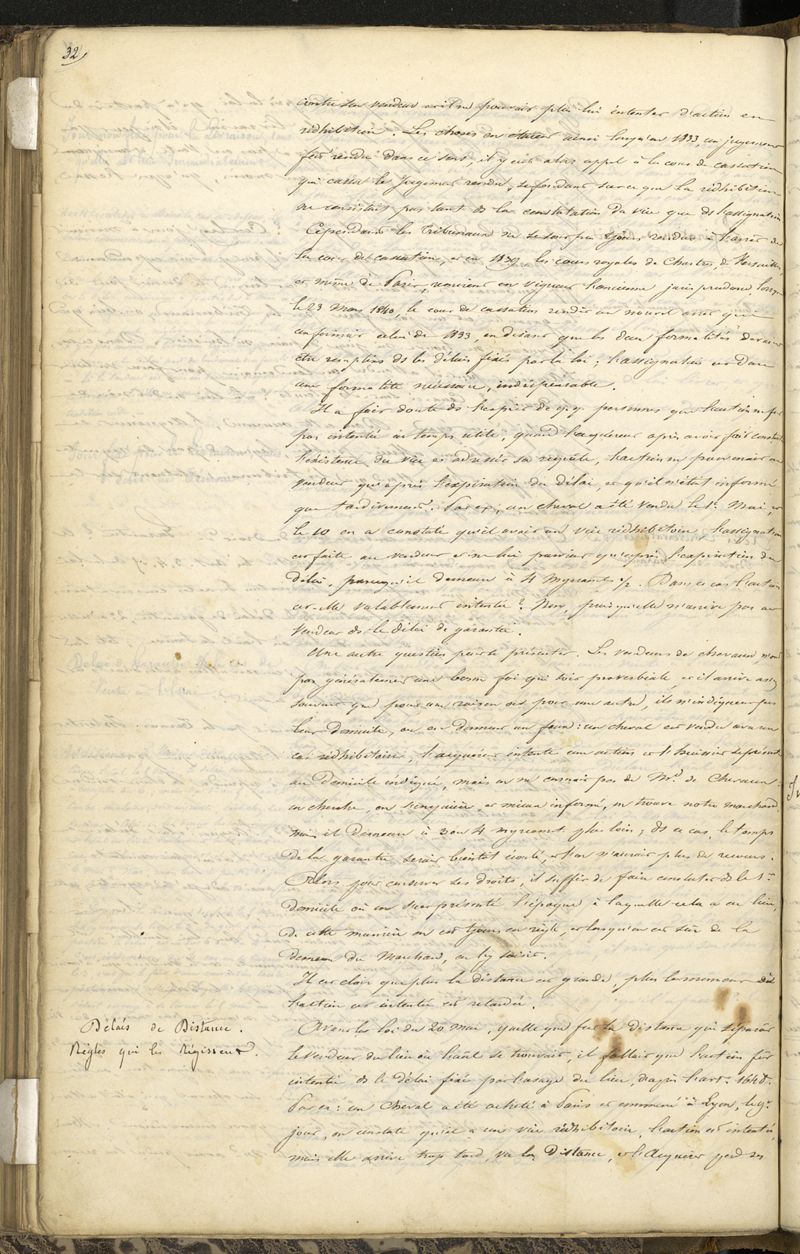 32,
contre son vendeur et il ne pouvait plus lui intenter d'action en
rédhibition. Les choses en étaient ainsi lorsqu'en 1833, un jugement
fut rendu dans ce sens, il y eut alors appel à la cour de cassation
qui cassa le Jugement rendu, se fondant sur ce que la rédhibition
ne consistait pas tant ds la constatation du vice que ds l'assignation
Cependant les Tribunaux ne se sont pas tjours rendus à l'arrêt de
la cour de cassation, et en 1839, les cours royales de Chartres, de Versailles,
et même de Paris, remirent en vigueur l'ancienne jurisprudence, lorsque
le 23 Mars 1840, la cour de cassation rendit un nouvel arrêt qui
confirmait celui de 1833, en disant que les deux formalités devaient
être remplies ds les délais fixés par la loi; l'assignation est donc
une formalité nécessaire, indispensable.
Il a fait doute ds l'esprit de q.q. personnes que l'action ne fut
pas intentée en temps utile, quand l'acquéreur après avoir fait constater
l'existence du vice et adressé sa requête, l'action ne parvenait au
vendeur qu'après l'expiration du délai, et qu'il n'était informé
que tardivement. Par ex, un cheval a été vendu le 1er Mai, et
le 10 on a constaté qu'il avait un vice rédhibitoire l'assignation
est faite au vendeur et ne lui parvient qu'après l'expiration du
délai, parcequ'il demeure à 4 myriamts 1/2. Dans ce cas l'action
est-elle valablement intentée? Non, puisqu'elle n'arrive pas au
vendeur ds le délai de garantie.
Une autre question peut se présenter. Les vendeurs de chevaux n'ont
pas généralement une bonne foi qui soit proverbiale et il arrive assez
souvent que pour une raison ou pour une autre, ils n'indiquent pas
leur domicile, ou en donnent un faux: un cheval est vendu avec un
cas rédhibitoire, l'acquéreur intente une action et l'huissier se présente
au Domicile indiqué, mais on ne connait pas de Md de Chevaux
on cherche, on s'enquière, et mieux informé, on trouve notre marchand
mais il demeure à 3 ou 4 myriamt plus loin; ds ce cas, le temps
de la garantie serait bientôt écoulé, et l'on n'aurait plus de recours.
Alors pour conserver ses droits, il suffit de faire constater ds le 1er
domicile où on s'est présenté l'époque à laquelle cela a eu lieu,
de cette manière on est tjours en règle, et lorsqu'on est sûr de la
demeure du Marchand, on l'y saisit.
Il est clair que plus la distance est grande, plus le moment où
l'action est intentée est retardée.
Délais de Distance.
Règles qui les Régissent.
Avant la loi du 20 mai, quelle que fut la distance qui séparait
le vendeur du lieu où l'anl se trouvait, il fallait que l'action fût
intentée ds le délai fixé par l'usage du lieu, d'après l'art. 1648.
Par ex: un Cheval a été acheté à Paris et emmené à Lyon, le 9e
jour, on constate qu'il a un vice rédhibitoire, l'action est intentée
mais elle arrive trop tard, vu la Distance, et l'Acquéreur perd ses